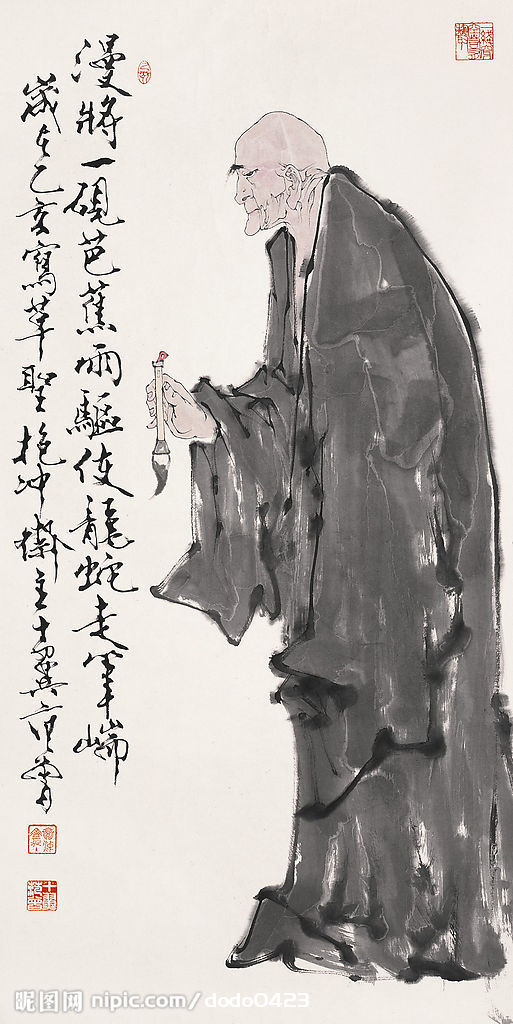 漫將一硯芭蕉雨驅使龍蛇走筆端
歲在乙亥寫草聖抱冲齋主十翼范曾
昵图网 nipic.com/dodo0423